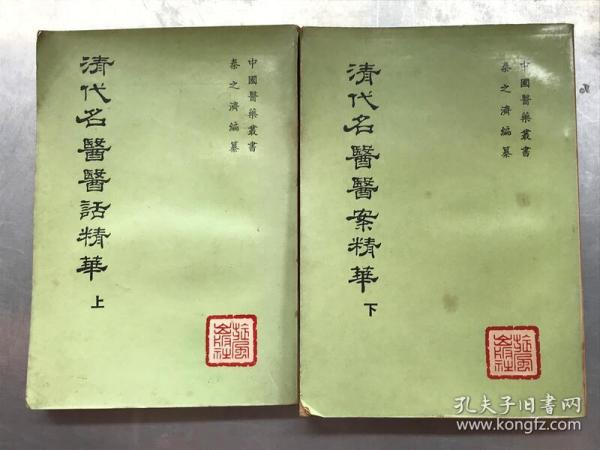 中國醫藥叢書
秦之濟編纂
清代名醫醫話精華 上
中國醫藥叢書
秦之濟編纂
清代名醫醫案精華 下
旋風出版社
旋風出版社
孔夫子旧书网
www.kongfz.com